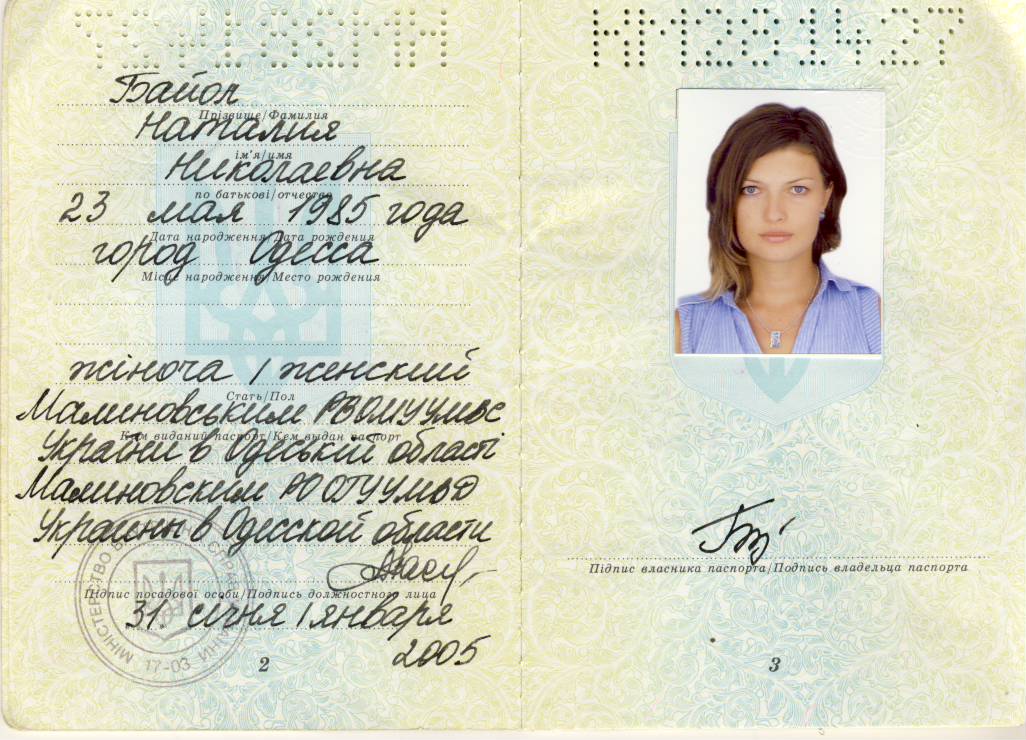 Байол
Прізвище/Фамилия
Наталия
ім'я/имя
Николаевна
по батькові/отчество
23 мая 1985 года
Дата народження/Дата рождения
город Одесса
Місце народження/Место рождения
жіноча / женский
Стать/Пол
Малиновським РВ ОМУ УМВС
Ким виданий паспорт/Кем выдан паспорт
України в Одеській області
Малиновским РО ОГУ УМВД
Украины в Одесской области
Підпис посадової особи/Подпись должностного лица
31 січня / января
2005
МІНІСТЕРСТВО
17-03
2
НМ1281427
Підпис власника паспорта/Подпись владельца паспорта
3